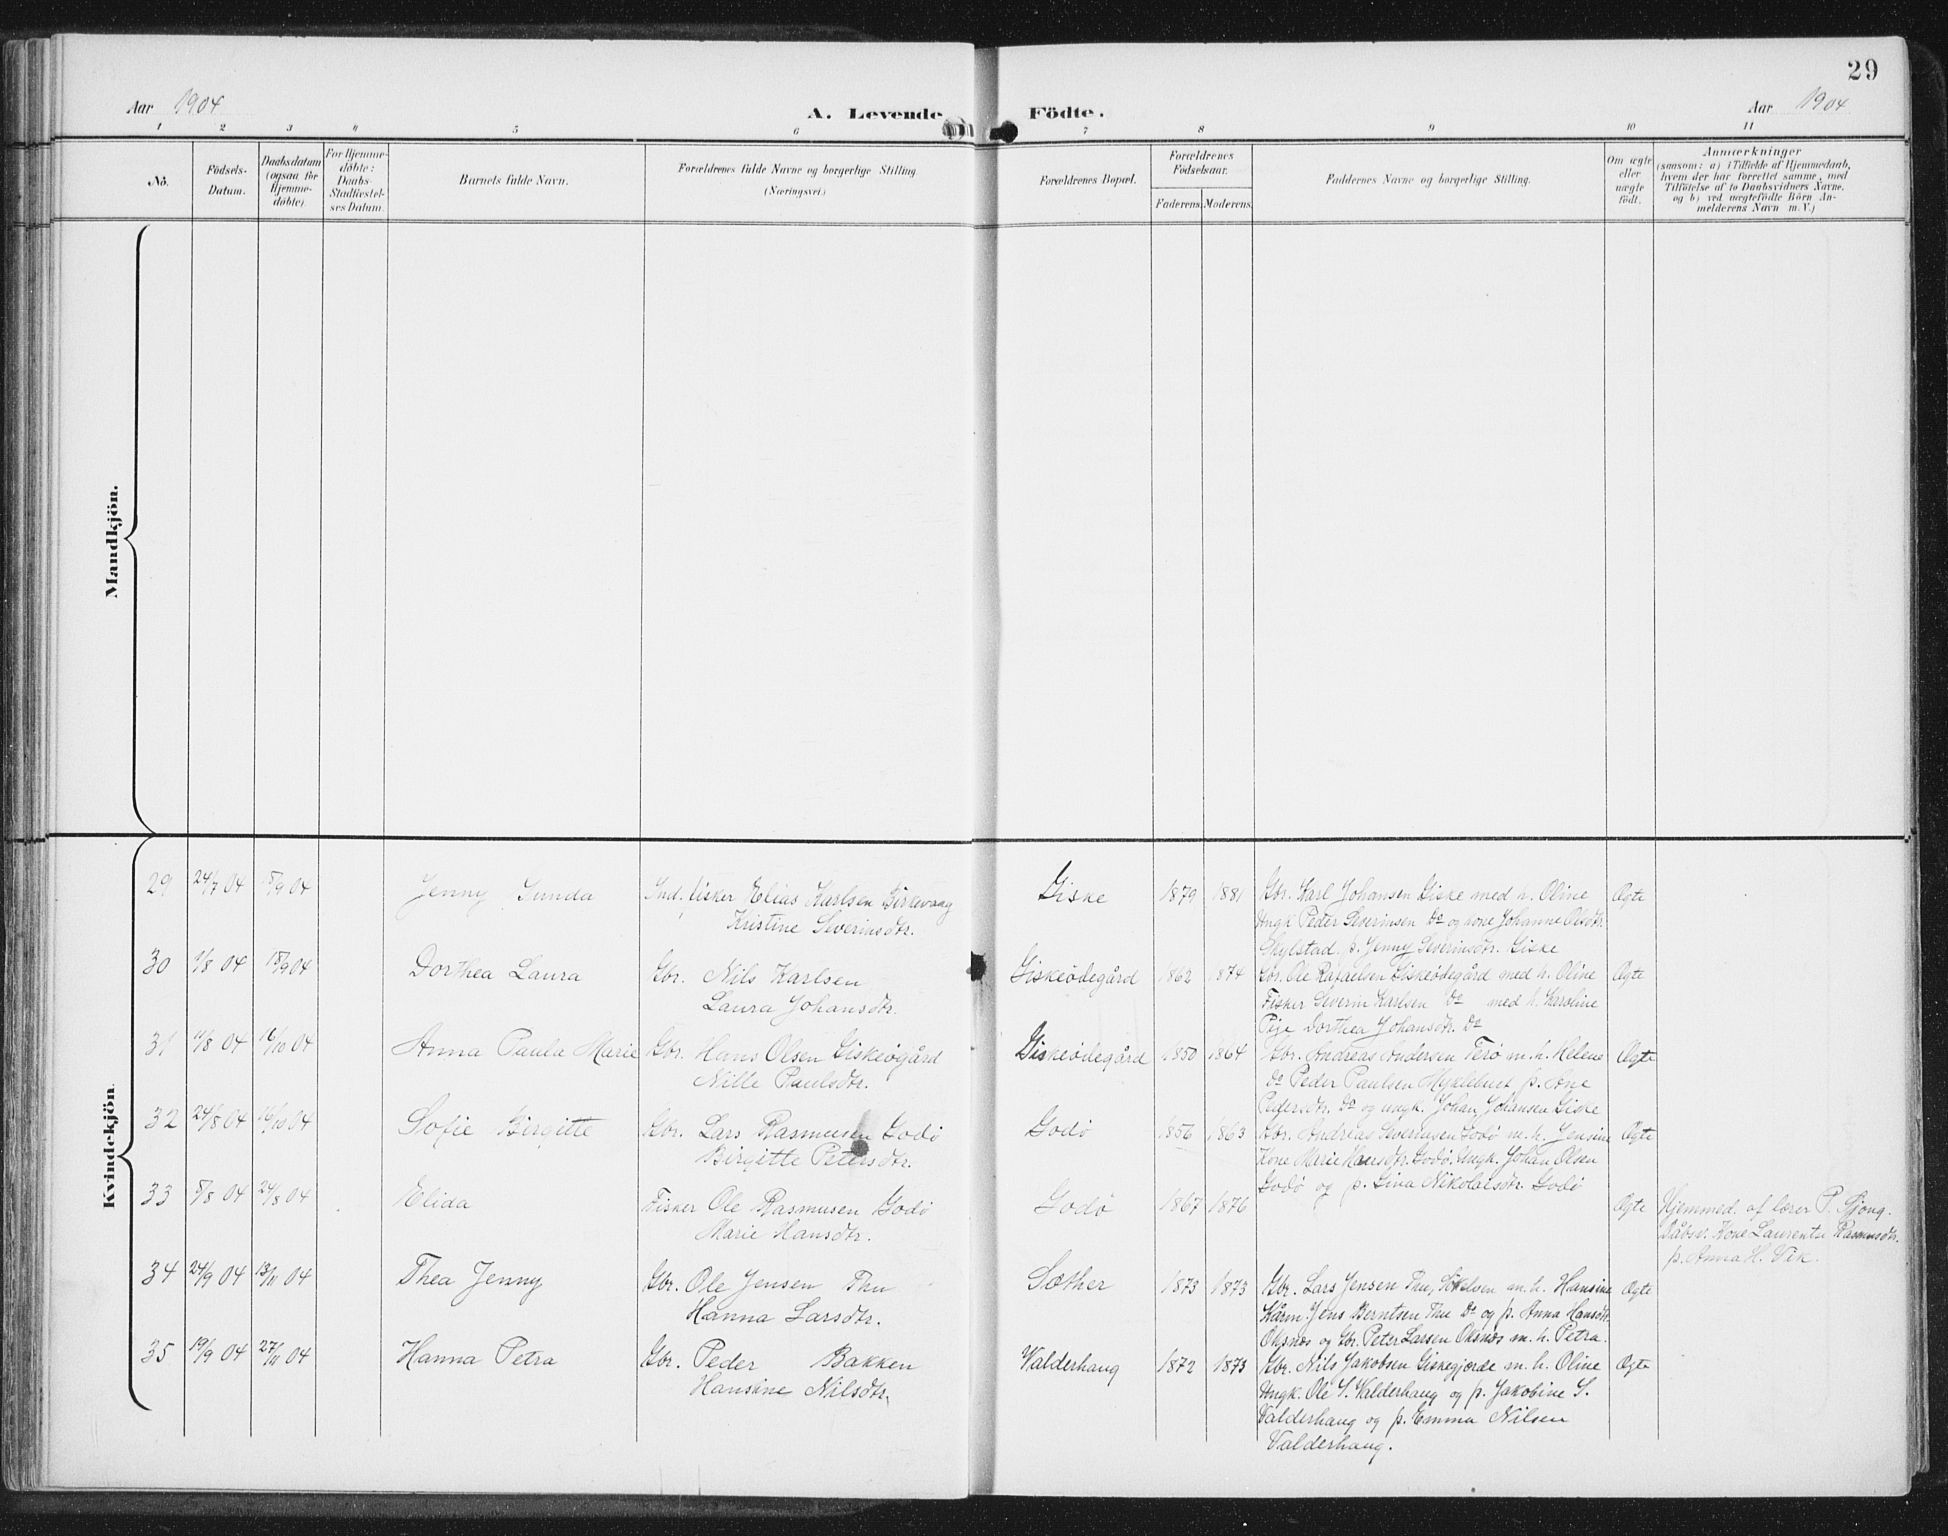 29
Aar 1904
A. Levende Födte.
Aar 1904
1 2 3 4 5 6 7 8 9 10 11
Nô.
Födsels-
Datum.
Daabsdatum
(ogsaa for
Hjemme-
döbte).
For Hjemme-
döbte:
Daabs-
Stadfæstel-
ses Datum.
Barnets fulde Navn.
Forældrenes fulde Navne og borgerlige Stilling
(Næringsvei)
Forældrenes Bopæl.
Forældrenes
Födselsaar.
Faderens. Moderens.
Faddernes Navne og borgerlige Stilling.
Om ægte
eller
uægte
födt.
Anmærkninger
(saasom: a) i Tilfælde af Hjemmedaab,
hvem der har forrettet samme, med
Tilföielse af to Daabsvidners Navne,
og b) ved uægtefödte Börn An-
melderens Navn m.V.)
Mandkjön.
Kvindekjön.
29 24/7 04 18/9 04 Jenny Gunda Ind. fisker Elias Karlsen Birkevaag Giske 1879 1881 Gbr. Karl Johansen Giske med h. Oline Ægte
Kristine Severinsdtr. Ungk Peder Severinsen Do og kone Johanne Olsdtr.
Skylstad, p. Jenny Severinsdtr. Giske
30 9/8 04 18/9 04 Dorthea Laura Gbr. Nils Karlsen Giskeødegård 1862 1874 Gbr. Ole Rafaelsen Giskeødegård med h. Oline Ægte
Laura Johansdtr. Fisker Severin Karlsen Do med h. Karoline
Pige Dorthea Johansdtr. Do
31 11/8 04 16/10 04 Anna Paula Marie Gbr. Hans Olsen Giskeøgård Giskeødegård 1850 1864 Gbr. Andreas Andersen Terø m. h. Helene Ægte
Nille Paulsdtr. Do Peder Paulsen Myklebust p. Ane
Pedersdtr. Do og ungk. Johan Johansen Giske
32 24/8 04 16/10 04 Sofie Birgitte Gbr. Lars Rasmusen Godø Godø 1856 1863 Gbr. Andreas Severinsen Godø m. h. Jensine Ægte
Birgitte Petersdtr. Kone Marie Hansdtr. Godø. Ungk. Johan Olsen
Godø og p. Gina Nikolaisdtr. Godø
33 8/8 04 24/8 04 Elida Fisker Ole Rasmusen Godø Godø 1867 1876 Ægte Hjemmed. af lærer P.
Marie Hansdtr. Dåbsv. Kone Laurentse Rasmusdtr.
p. Anna H. Vik.
34 24/9 04 13/11 04 Thea Jenny Gbr. Ole Jensen Thu Sæther 1873 1873 Gbr. Lars Jensen Thu, Søkelven m. h. Hansine Ægte
Hanna Larsdtr. Kårm. Jens Berntsen Thu Do og p. Anna Hansdtr.
Oksnes og Gbr. Peter Larsen Oksnes m. h. Petra.
35 19/9 04 27/11 04 Hanna Petra Gbr. Peder Bakken Valderhaug 1872 1873 Gbr. Nils Jakobsen Giskegjerde m. h. Oline Ægte
Hansine Nilsdtr. Ungk. Ole S. Valderhaug og p. Jakobine S.
Valderhaug og p. Emma Nilsen
Valderhaug.